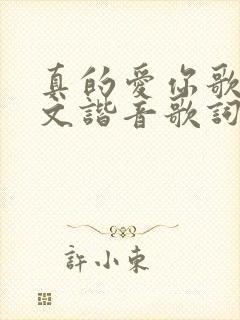 真的愛你歌
文諧音歌詞
許小東